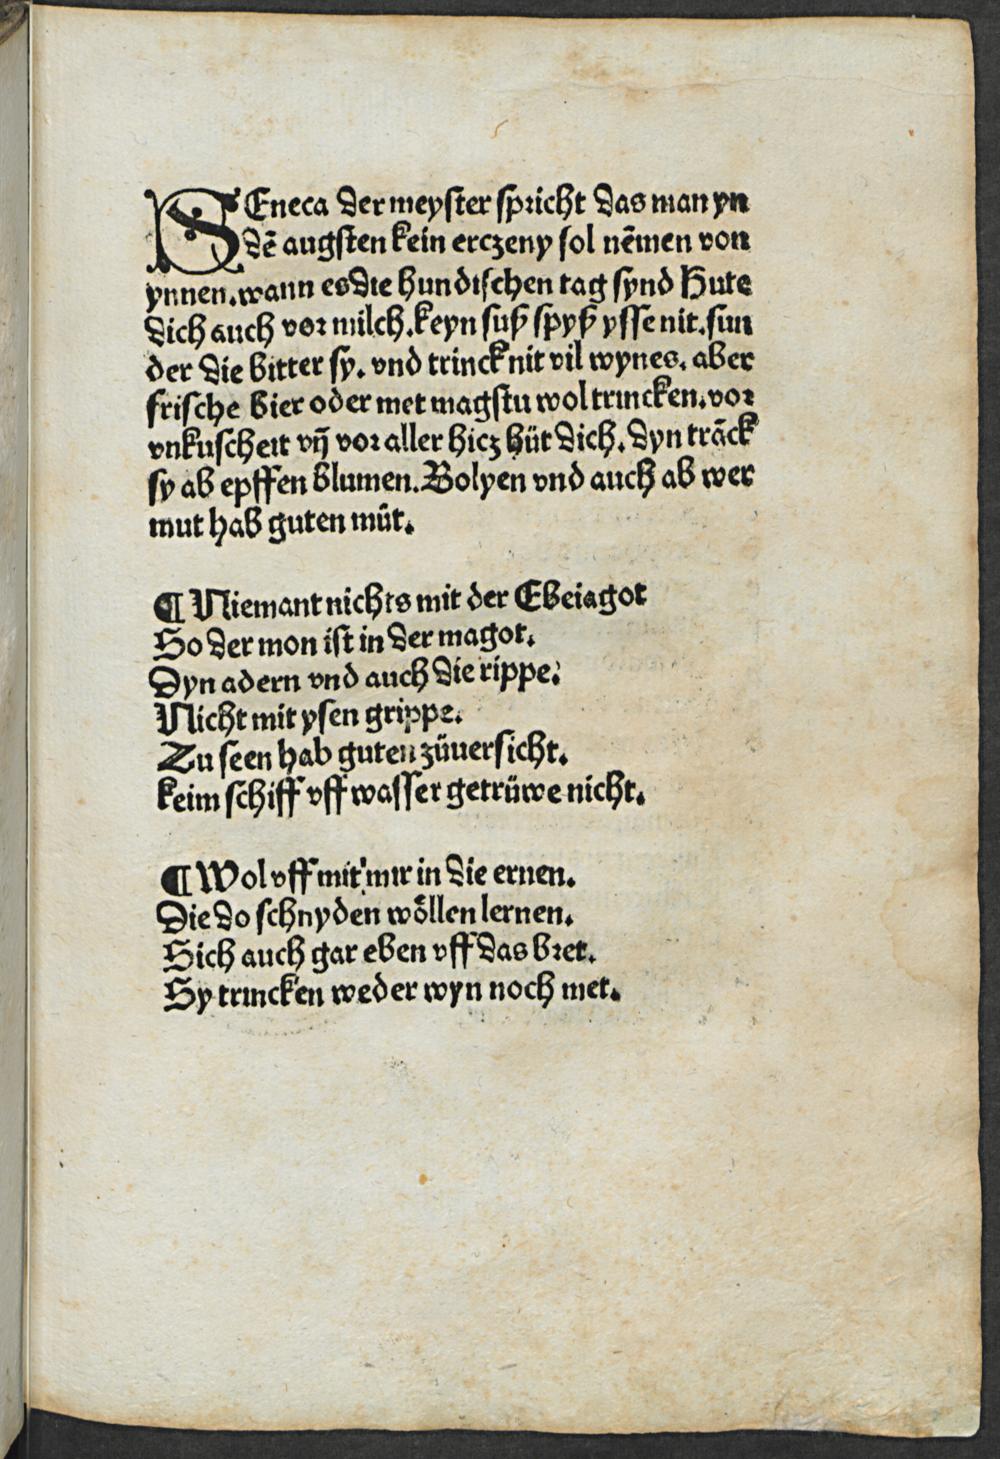 SEneca der meyster spricht das man yn
dē augsten kein erczeny sol nēmen von
ynnen.wann es die hundischen tag synd Hute
dich auch vor milch.keyn suß spyß ysse nit.sun
der die bitter sy. vnd trinck nit vil wynes. aber
frische bier oder met magstu wol trincken.vor
vnkuscheit vn̄ vor aller hicz hüt dich. dyn trāck
sy ab epffen blumen.Bolyen vnd auch ab wer
mut hab guten můt.

¶ Niemant nichts mit der Ebeiagot
So der mon ist in der magot.
Dyn adern vnd auch die rippe.
Nicht mit ysen grippe.
Zu seen hab guten züuersicht.
keim schiff vff wasser getrüwe nicht.

¶ Wol vff mit mir in die ernen.
Die do schnyden wöllen lernen.
Sich auch gar eben vff das bret.
Sy trincken weder wyn noch met.